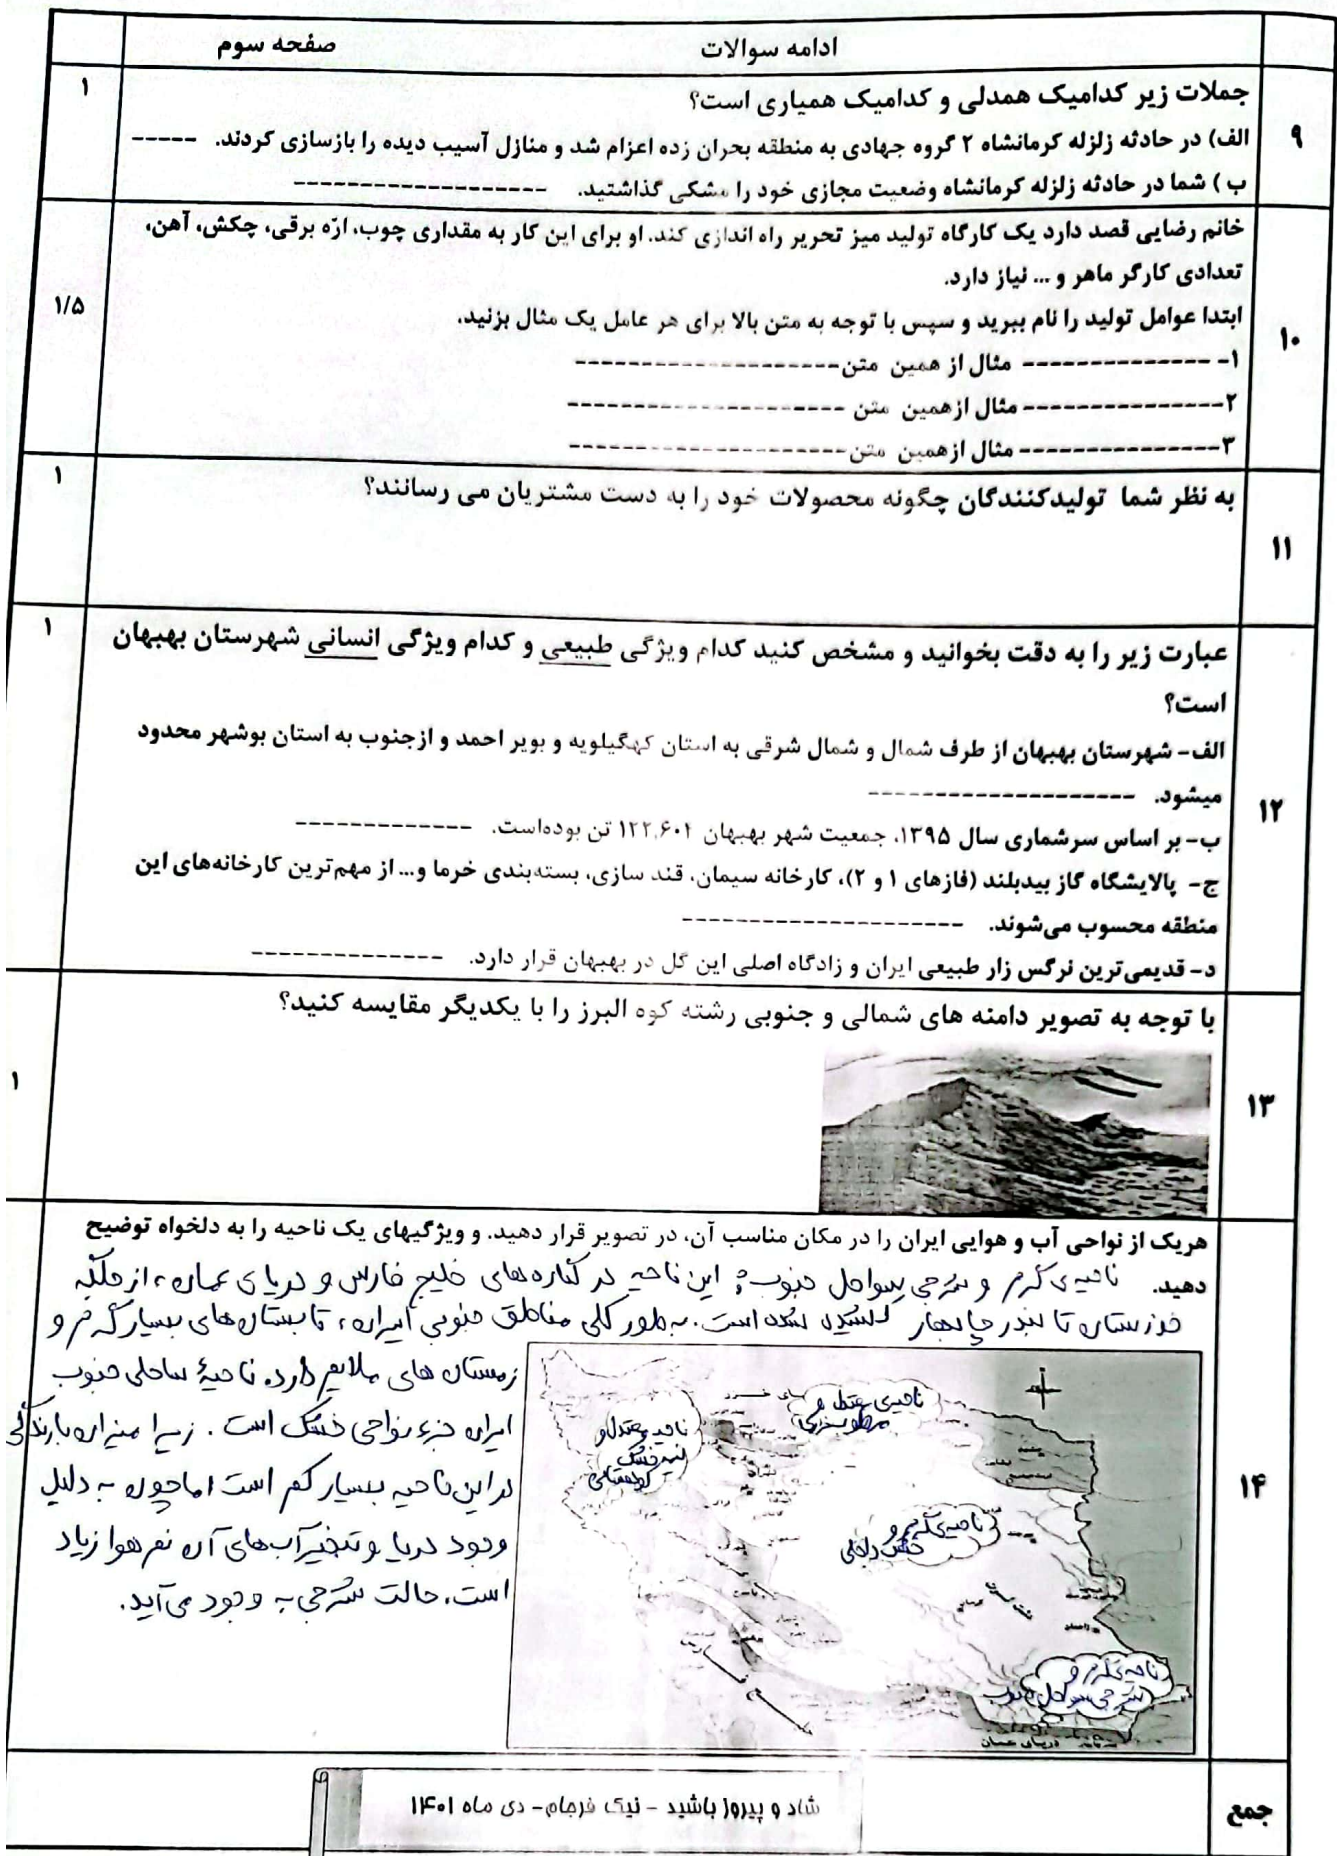 ادامه سوالات صفحه سوم
۹ جملات زیر کدامیک همدلی و کدامیک همیاری است؟ ۱
الف) در حادثه زلزله کرمانشاه ۲ گروه جهادی به منطقه بحران زده اعزام شد و منازل آسیب دیده را بازسازی کردند. -----
ب ) شما در حادثه زلزله کرمانشاه وضعیت مجازی خود را مشکی گذاشتید. -------------------
خانم رضایی قصد دارد یک کارگاه تولید میز تحریر راه اندازی کند. او برای این کار به مقداری چوب، ارّه برقی، چکش، آهن،
تعدادی کارگر ماهر و ... نیاز دارد.
۱۰ ابتدا عوامل تولید را نام ببرید و سپس با توجه به متن بالا برای هر عامل یک مثال بزنید. ۱/۵
۱- -------------- مثال از همین متن--------------------
۲--------------- مثال ازهمین متن ---------------------
۳--------------- مثال ازهمین متن---------------------
۱۱ به نظر شما تولیدکنندگان چگونه محصولات خود را به دست مشتریان می رسانند؟ ۱
عبارت زیر را به دقت بخوانید و مشخص کنید کدام ویژگی طبیعی و کدام ویژگی انسانی شهرستان بهبهان ۱
است؟
الف- شهرستان بهبهان از طرف شمال و شمال شرقی به استان کهگیلویه و بویر احمد و ازجنوب به استان بوشهر محدود
میشود. --------------------
۱۲ ب- بر اساس سرشماری سال ۱۳۹۵، جمعیت شهر بهبهان ۱۲۲,۶۰۲ تن بوده‌است. -------------
ج- پالایشگاه گاز بیدبلند (فازهای ۱ و ۲)، کارخانه سیمان، قند سازی، بسته‌بندی خرما و... از مهم‌ترین کارخانه‌های این
منطقه محسوب می‌شوند. ---------------------
د- قدیمی‌ترین نرگس زار طبیعی ایران و زادگاه اصلی این گل در بهبهان قرار دارد. --------------
۱۳ با توجه به تصویر دامنه های شمالی و جنوبی رشته کوه البرز را با یکدیگر مقایسه کنید؟ ۱
هریک از نواحی آب و هوایی ایران را در مکان مناسب آن، در تصویر قرار دهید. و ویژگیهای یک ناحیه را به دلخواه توضیح
دهید. ناحیه ی گرم و شرجی سواحل جنوب: این ناحیه در کناره های خلیج فارس و دریای عمان، از جلگه
خوزستان تا بندر چابهار کشیده شده است. به طور کلی مناطق جنوبی ایران، تابستان های بسیار گرم و
زمستان های ملایم دارد. ناحیهٔ ساحلی جنوب
ایران جزء نواحی خشک است. زیرا میزان بارندگی
در این ناحیه بسیار کم است اما چون به دلیل
وجود دریا و تبخیر آب های آن نم هوا زیاد
است، حالت شرجی به وجود می آید.
۱۴
ناحیه ی معتدل و
مرطوب خزری
ناحیه معتدل و
نیمه خشک
کوهستانی
ناحیه ی گرم و
خشک داخلی
ناحیه ی گرم و
شرجی سواحل جنوب
دریای عمان
جمع
شاد و پیروز باشید - نیک فرجام- دی ماه ۱۴۰۱